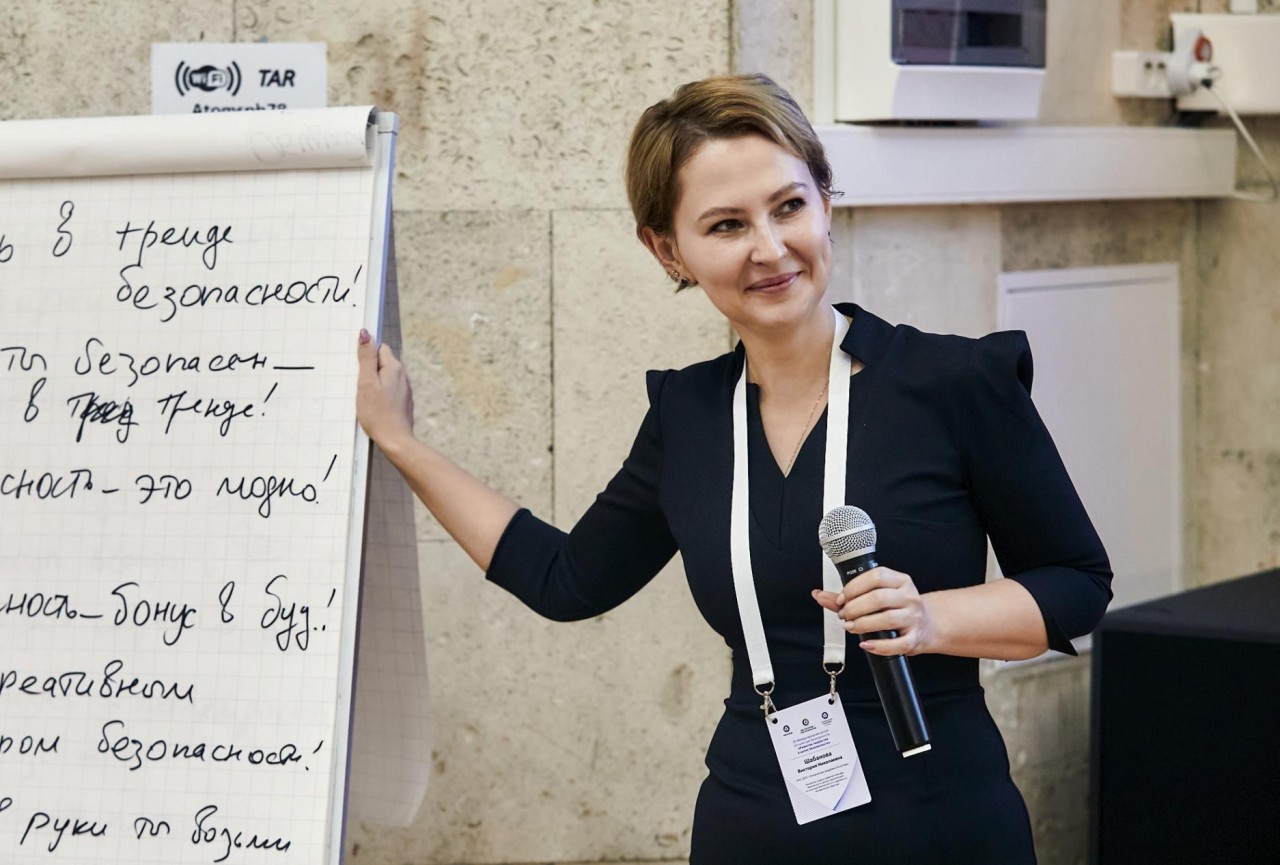 WiFi TAR
Atomsph78
в тренде
безопасности!
ты безопасен—
в тренде!
сность – это модно!
ность – бонус в буд.!
реативным
ром безопасности!
руки ты возьми
Шабанова
Виктория Николаевна